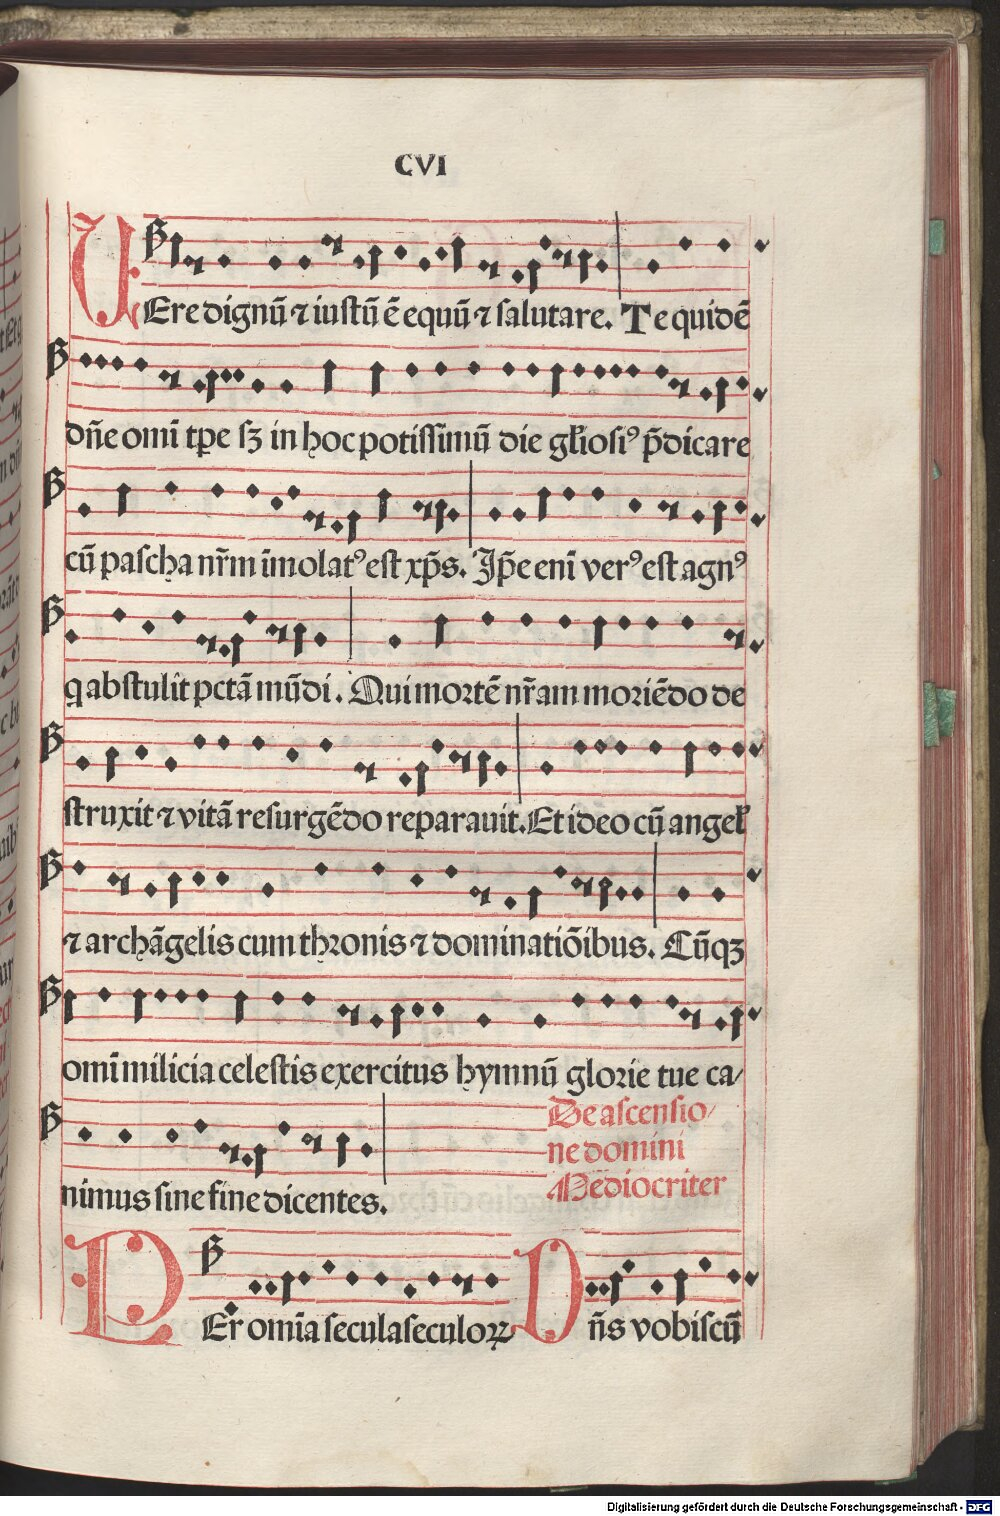 CVI
VEre dignũ ⁊ iustũ ẽ equũ ⁊ salutare. Te quidẽ
dñe omĩ tp̃e sꝫ in hoc potissimũ die gl̃iosiꝰ p̃dicare
cũ pascha nr̃m ĩmolatꝰ est xp̃s. Ip̃e enĩ verꝰ est agnꝰ
q abstulit pctã mũdi. Qui mortẽ nr̃am moriẽdo de
struxit ⁊ vitã resurgẽdo reparauit. Et ideo cũ angel̃
⁊ archãgelis cum thronis ⁊ dominatiõibus. Cũqꝫ
omĩ milicia celestis exercitus hymnũ glorie tue ca/
nimus sine fine dicentes.
De ascensio/
ne domini
Mediocriter
PEr̃ omĩa secula seculoꝝ Dñs vobiscũ
Digitalisierung gefördert durch die Deutsche Forschungsgemeinschaft - DFG